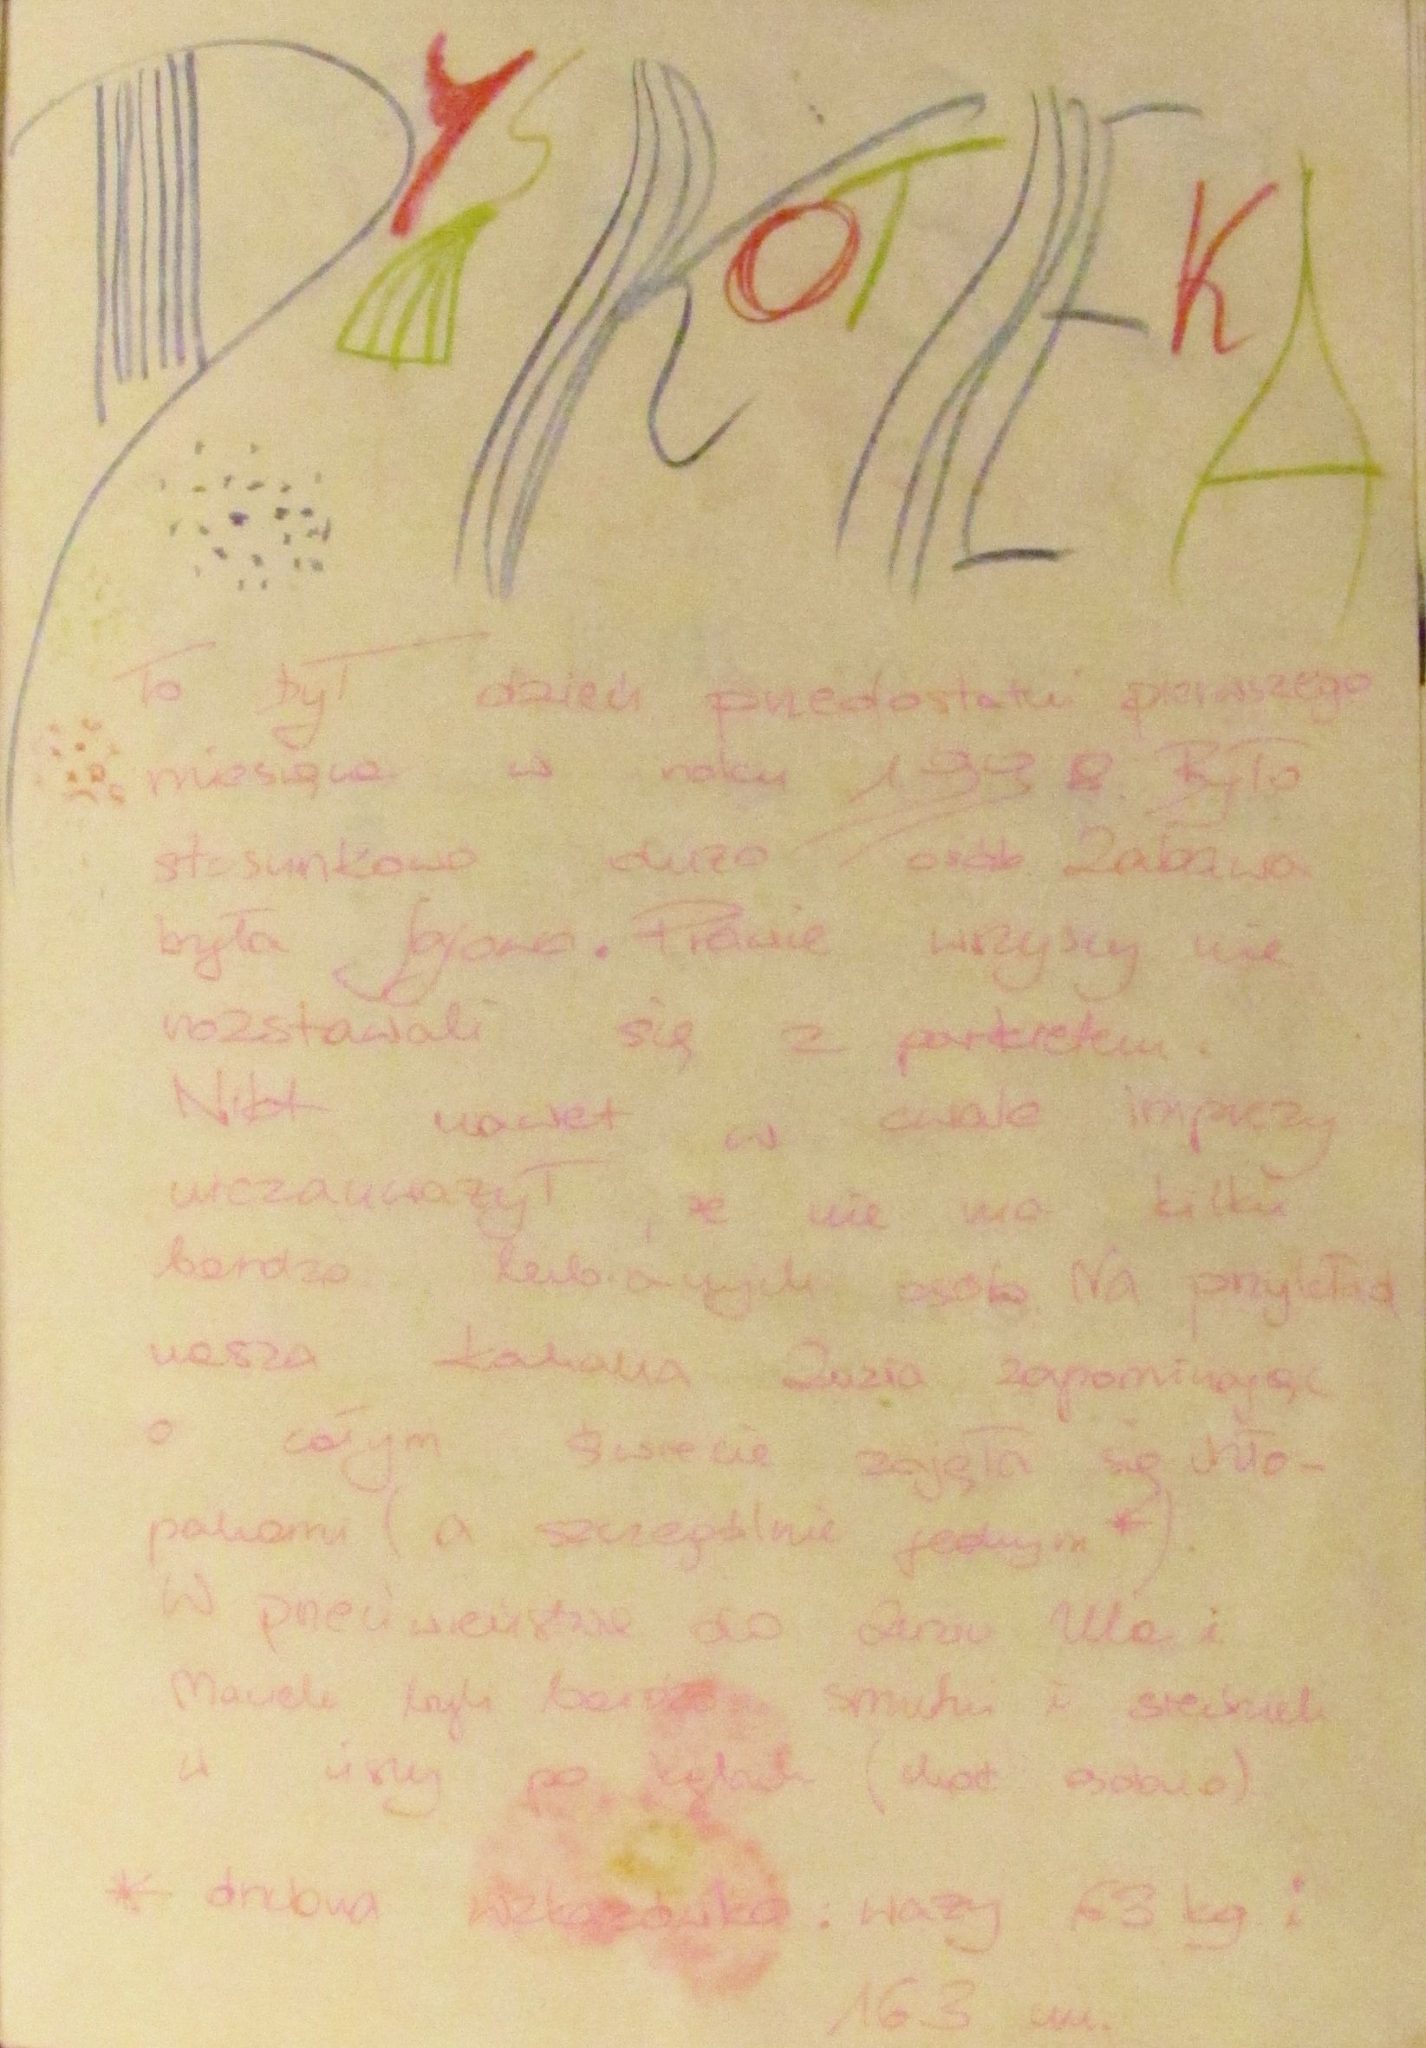 DYSKOTEKA
To był dzień przedostatni pierwszego
miesiąca w roku 1998. Było
stosunkowo dużo osób. Zabawa
była fajowa. Prawie wszyscy nie
rozstawali się z parkietem.
Nikt nawet w czasie imprezy
niezauważył, że nie ma kilku
bardzo lubianych osób. Na przykład
nasza kochana Zuzia zapominając
o całym świecie zajęła się chło-
pakami (a szczególnie jednym*).
W przeciwieństwie do Zuzi Ula i
Maciek byli bardzo smutni i siedzieli
w ciszy po kątach (choć osobno)
* drobna wzkazówka: waży 63 kg i
163 m.